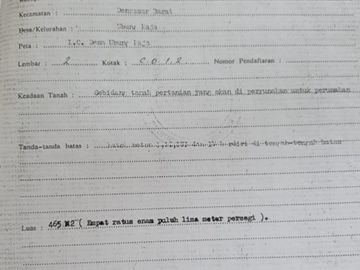 Kecamatan : Denpasar Barat
Desa/Kelurahan : Ubung Kaja
Peta : I.C. Desa Ubung Kaja
Lembar : 2 Kotak : C D 1,2 Nomor Pendaftaran :
Keadaan Tanah : Sebidang tanah pertanian yang akan di pergunakan untuk perumahan
Tanda-tanda batas : batas beton I, II, III dan IV berdiri di tengah-tengah batas
Luas : 465 M2 ( Empat ratus enam puluh lima meter persegi ).